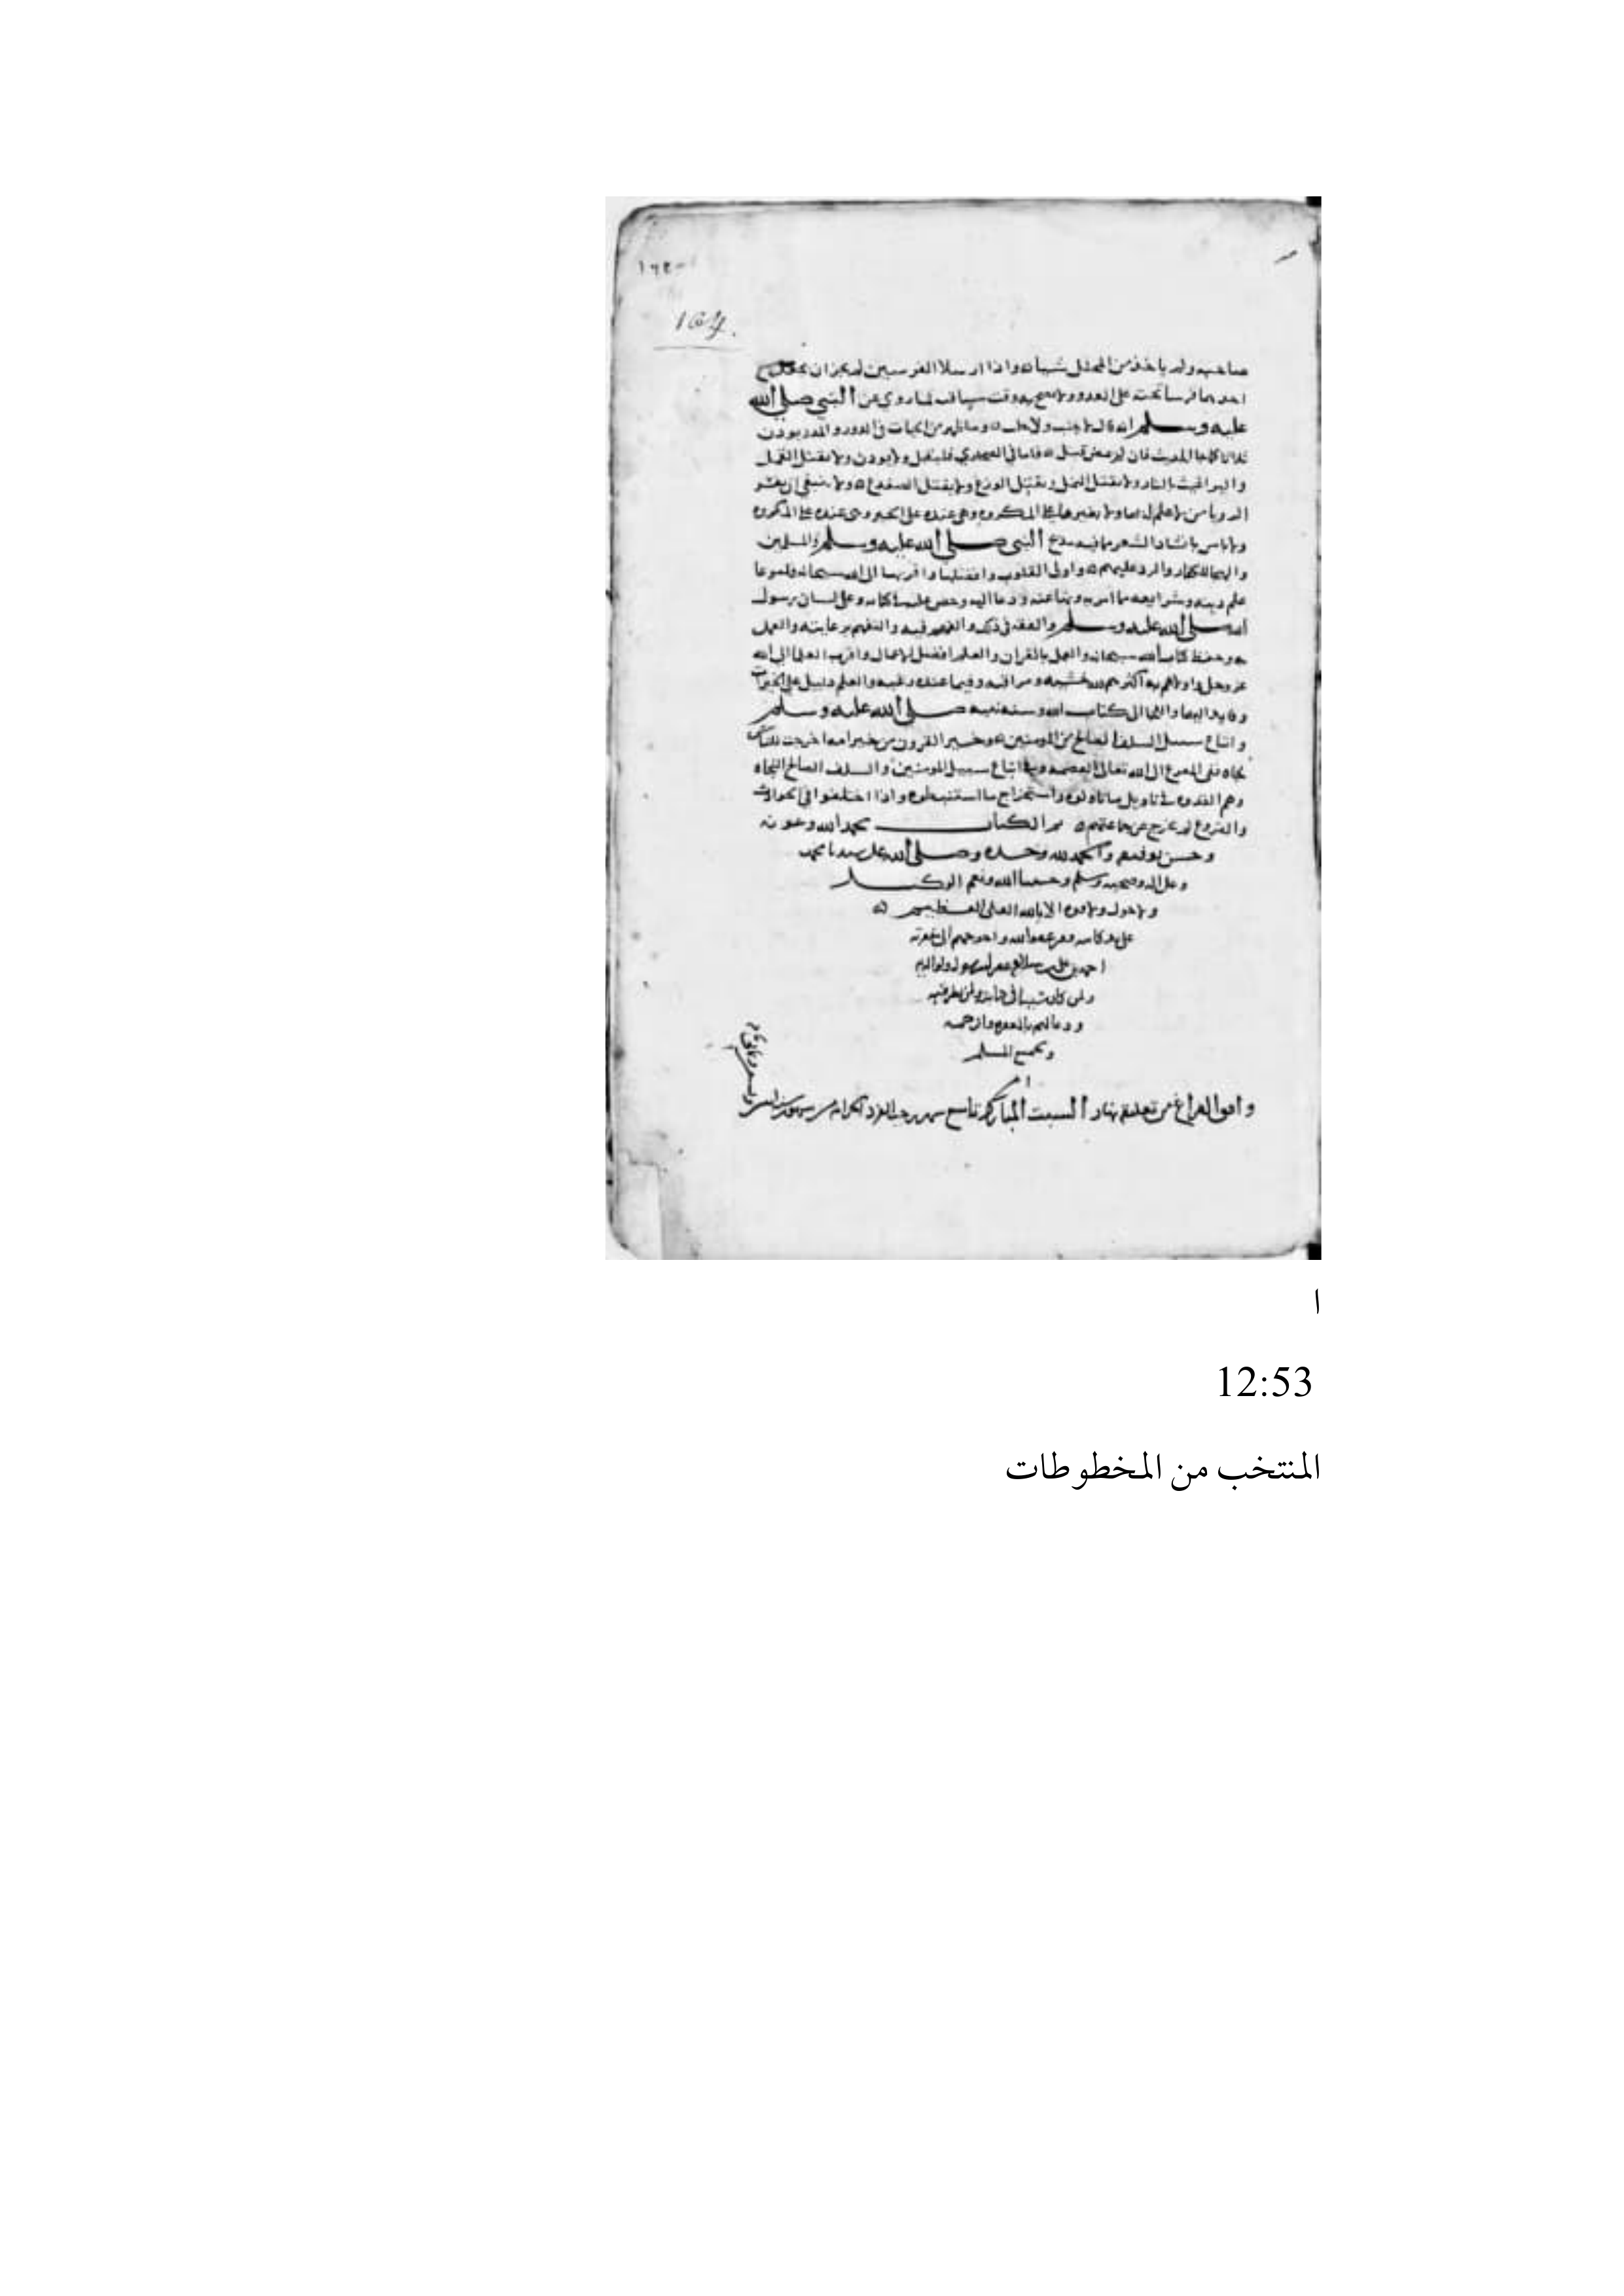 ١٦٢
164.
صاحبه ولم ياخذ من المحلل شيا واذا ارسلا الفرسين لم يجز ان
احدهما فرسا تحث على العدو ولا به وقت سباقه لما روي عن النبي صلى الله
عليه وسلم انه قال لا جلب ولا جنب وما ظهر من الحيات في الدور والمدر يوذن
ثلاثا كما جا الحديث فان قتل فاما في الصحاري فليقتل ولا يوذن ولا يقتل القمل
والبراغيث بالنار ولا يقتل النمل ويقتل الوزغ ولا يقتل الضفدع ولا ينبغي ان يفسر
الرويا من لا علم له بها ولا يعبرها على المكروه وهي عنده على الخير وهي عنده على المكروه
ولا باس بانشاد الشعر مما فيه مدح النبي صلى الله عليه وسلم والمسلمين
والهجا للكفار والرد عليهم واولى القلوب وافضلها واقربها الى الله سبحانه قلب وعا
علم دينه وشرايعه مما امر به ونها عنه ودعا اليه وحض عليه في كتابه وعلى لسان رسول
الله صلى الله عليه وسلم والفقه في ذلك والفهم فيه والتفهم برعايته والعمل
به وحفظ كتاب الله سبحانه والعمل بالقران والعلم افضل الاعمال واقرب العلما الى الله
عز وجل واولاهم به اكثرهم لله خشية ومراقبة وفيما عنده رغبة والعلم دليل على الخيرات
وقايد اليها واللجا الى كتاب الله وسنة نبيه صلى الله عليه وسلم
واتباع سبيل السلف الصالح من المومنين وخير القرون من خير امة اخرجت للناس
نجاه ففي المفزع الى الله تعالى العصمه وفي اتباع سبيل المومنين والسلف الصالح النجاه
وهم القدوه في تاويل ما تاولوه واستخراج ما استنبطوه واذا اختلفوا في الحوادث
والفروع لم يخرج عن جماعتهم تم الكتاب بحمد الله وعونه
وحسن توفيقه والحمد لله وحده وصلى الله على سيدنا محمد
وعلى اله وصحبه وسلم وحسبنا الله ونعم الوكيل
ولا حول ولا قوه الا بالله العلي العظيم
على يد كاتبه عفو الله واحوجهم الى مغفرته
احمد بن علي غفر الله له ولوالديه
ولمن كان سببا في ولمن نظر فيه
ودعا لهم بالمغفره والرحمه
ولجميع المسلمين
امين
وافق الفراغ من تعليقه نهار السبت المبارك تاسع شهر رجب الفرد الحرام من شهور سنة
ا
12:53
المنتخب من المخطوطات